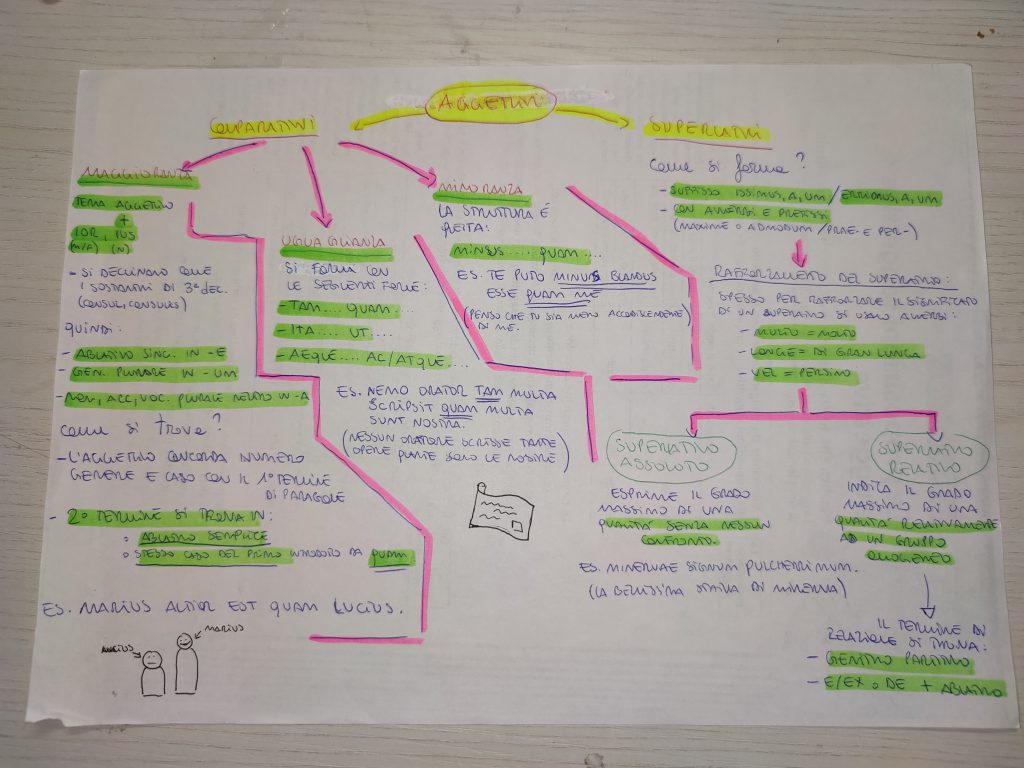 AGGETTIVI
COMPARATIVI
SUPERLATIVI
MAGGIORANZA
TEMA AGGETTIVO
+
IOR, IUS
(M/F) (N)
- SI DECLINANO COME
I SOSTANTIVI DI 3ª DEC.
(CONSUL, CONSULIS)
QUINDI:
- ABLATIVO SING. IN -E
- GEN. PLURALE IN -UM
- NOM, ACC, VOC. PLURALE NEUTRO IN -A
COME SI TROVA?
- L'AGGETTIVO CONCORDA NUMERO
GENERE E CASO CON IL 1° TERMINE
DI PARAGONE
- 2° TERMINE SI TROVA IN:
ABLATIVO SEMPLICE
STESSO CASO DEL PRIMO INTRODOTTO DA QUAM
ES. MARIUS ALTIOR EST QUAM LUCIUS.
MARIUS
UGUAGLIANZA
SI FORMA CON
LE SEGUENTI FORME:
- TAM.... QUAM....
- ITA.... UT....
- AEQUE.... AC/ATQUE....
ES. NEMO ORATOR TAM MULTA
SCRIPSIT QUAM MULTA
SUNT NOSTRA.
(NESSUN ORATORE SCRISSE TANTE
OPERE QUANTE SONO LE NOSTRE)
MINORANZA
LA STRUTTURA É
QUESTA:
MINUS.... QUAM....
ES. TE PUTO MINUS BLANDUS
ESSE QUAM ME
(PENSO CHE TU SIA MENO ACCONDISCENDENTE
DI ME.)
COME SI FORMA?
- SUFFISSO ISSIMUS, A, UM / ERRIMUS, A, UM
- CON AVVERBI E PREFISSI
(MAXIME O ADMODUM / PRAE- E PER-)
RAFFORZAMENTO DEL SUPERLATIVO:
SPESSO PER RAFFORZARE IL SIGNIFICATO
DI UN SUPERLATIVO SI USANO AVVERBI:
- MULTO = MOLTO
- LONGE = DI GRAN LUNGA
- VEL = PERSINO
SUPERLATIVO
ASSOLUTO
ESPRIME IL GRADO
MASSIMO DI UNA
QUALITA' SENZA NESSUN
CONFRONTO.
ES. MINERVAE SIGNUM PULCHERRIMUM.
(LA BELLISSIMA STATUA DI MINERVA)
SUPERLATIVO
RELATIVO
INDICA IL GRADO
MASSIMO DI UNA
QUALITA' RELATIVAMENTE
AD UN GRUPPO
OMOGENEO
IL TERMINE DI
RELAZIONE SI TROVA:
- GENITIVO PARTITIVO
- E/EX O DE + ABLATIVO